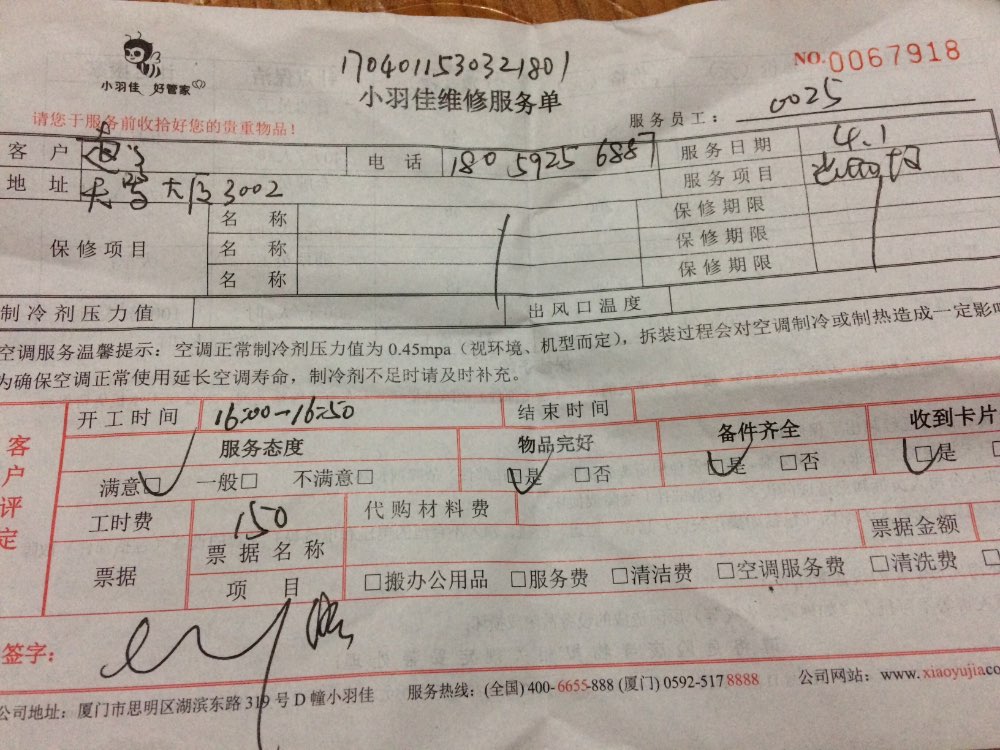 小羽佳 好管家
1704011530321801
NO.0067918
小羽佳维修服务单
请您于服务前收拾好您的贵重物品！
服务员工： 0025
客户 电话 180 5925 6887 服务日期 4.1
地址 大厦 3002 服务项目
保修项目 名称 保修期限
名称 保修期限
名称 保修期限
制冷剂压力值 出风口温度
空调服务温馨提示：空调正常制冷剂压力值为 0.45mpa（视环境、机型而定），拆装过程会对空调制冷或制热造成一定影响
为确保空调正常使用延长空调寿命，制冷剂不足时请及时补充。
客户评定
开工时间 16:00-16:50 结束时间
服务态度 物品完好 备件齐全 收到卡片
满意□ 一般□ 不满意□ □是 □否 □是 □否 □是
工时费 150 代购材料费
票据 票据名称 票据金额
项目 □搬办公用品 □服务费 □清洁费 □空调服务费 □清洗费
签字：
公司地址：厦门市思明区湖滨东路 319 号 D 幢小羽佳 服务热线：(全国) 400-6655-888 (厦门) 0592-517 8888 公司网站：www.xiaoyujia.co